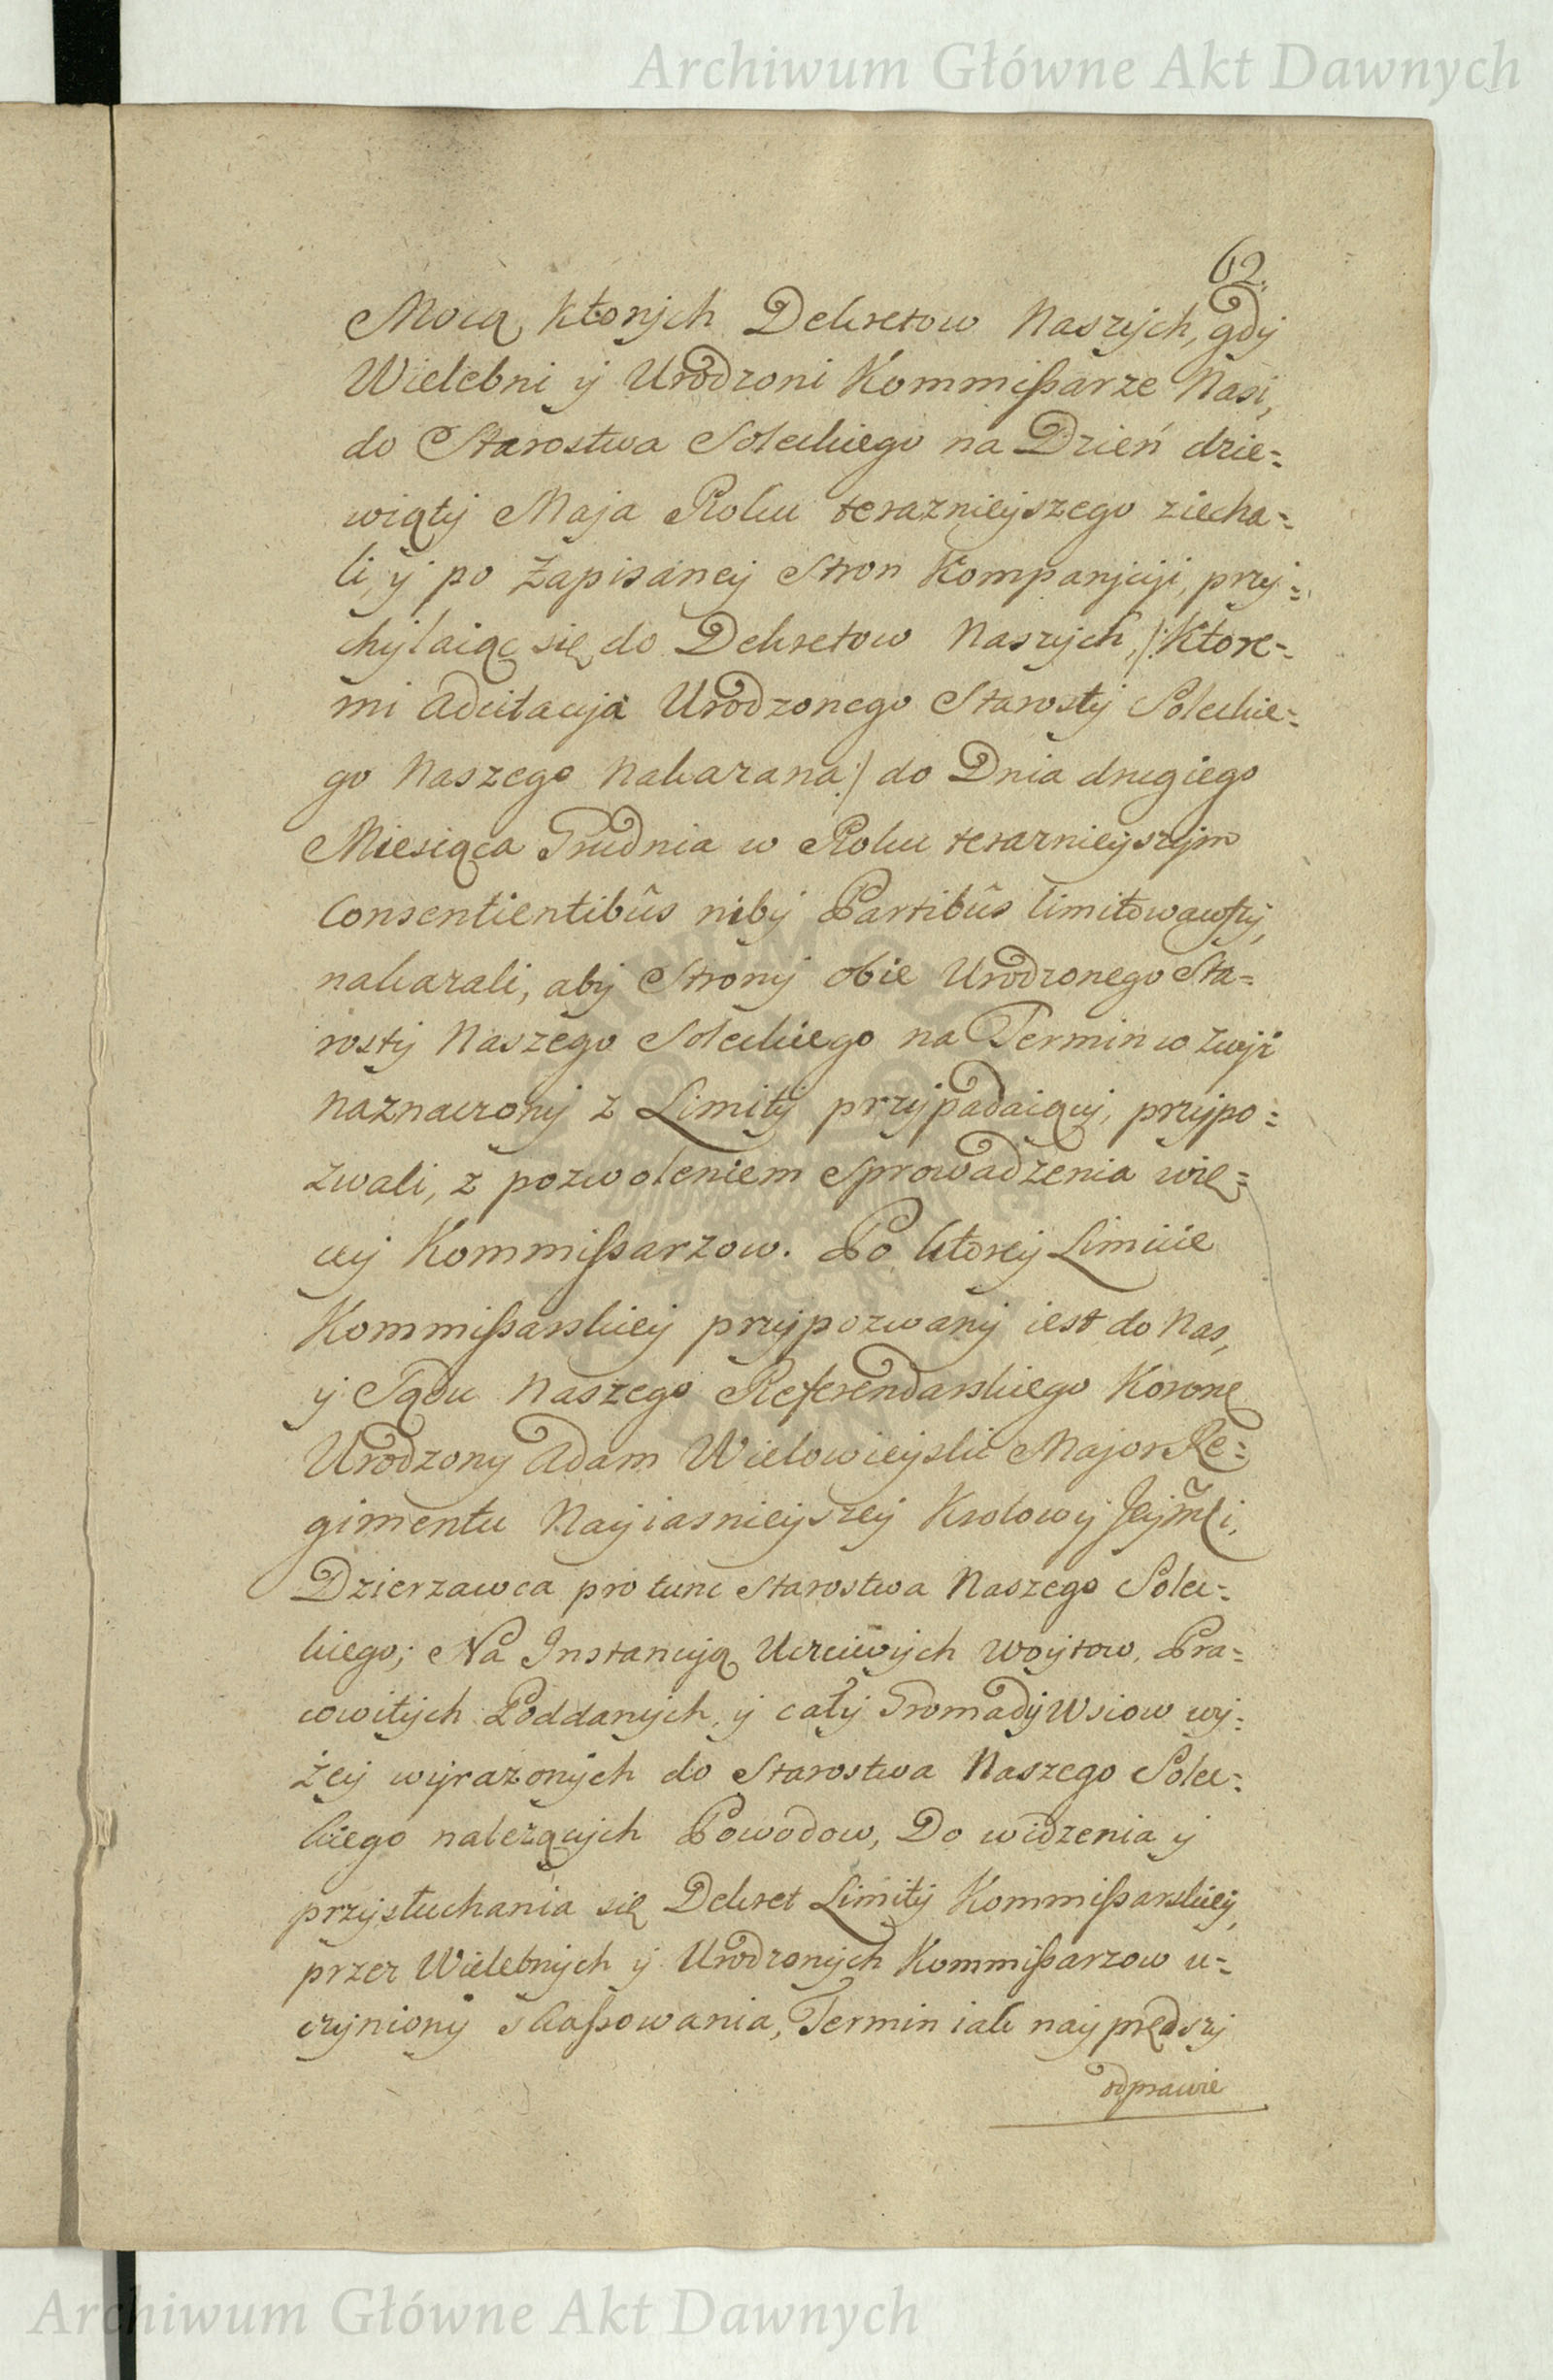 Archiwum Główne Akt Dawnych
62.
Mocą ktorych Dekretow Naszych, gdy
Wielebni y Urodzoni Kommißarze Nasi,
do Starostwa Soleckiego na Dzień dzie=
wiąty Maja Roku terazniejszego ziecha=
li, y po Zapisaney Stron Kompanycyi, przy=
chylaiąc się do Dekretow Naszych, /:ktore=
mi adcitacyja Urodzonego Starosty Soleckie=
go Naszego nakazana:/ do Dnia drugiego
Miesiąca Grudnia w Roku terazniejszym
Consentientibûs niby Partibûs limitowawszy,
nakazali, aby Strony obie Urodzonego Sta=
rosty Naszego Soleckiego na Termin w zwyż
naznaczony z Limity przypadaiący, przypo=
zwali, z pozwoleniem Sprowadzenia wię=
cey Kommißarzow. Po ktorey Limicie
Kommißarskiey przypozwany iest do Nas,
y Sądu Naszego Referendarskiego Koronę
Urodzony Adam Wielowieyski Major Re=
gimentu Nayiasnieyszey Krolowy Jeym̃ci,
Dzierzawca pro tunc Starostwa Naszego Solec=
kiego; Na Instancyją Uczciwych Woytow, Pra=
cowitych Poddanych, y cały Gromady Wsiow wy=
żey wyrazonych do Starostwa Naszego Solec=
kiego nalezących Powodow, Do widzenia y
przysłuchania się Dekret Limity Kommißarskiey,
przez Wielebnych y Urodzonych Kommißarzow u=
czyniony skaßowania, Termin iak nay prędszy
odprawie
Archiwum Główne Akt Dawnych